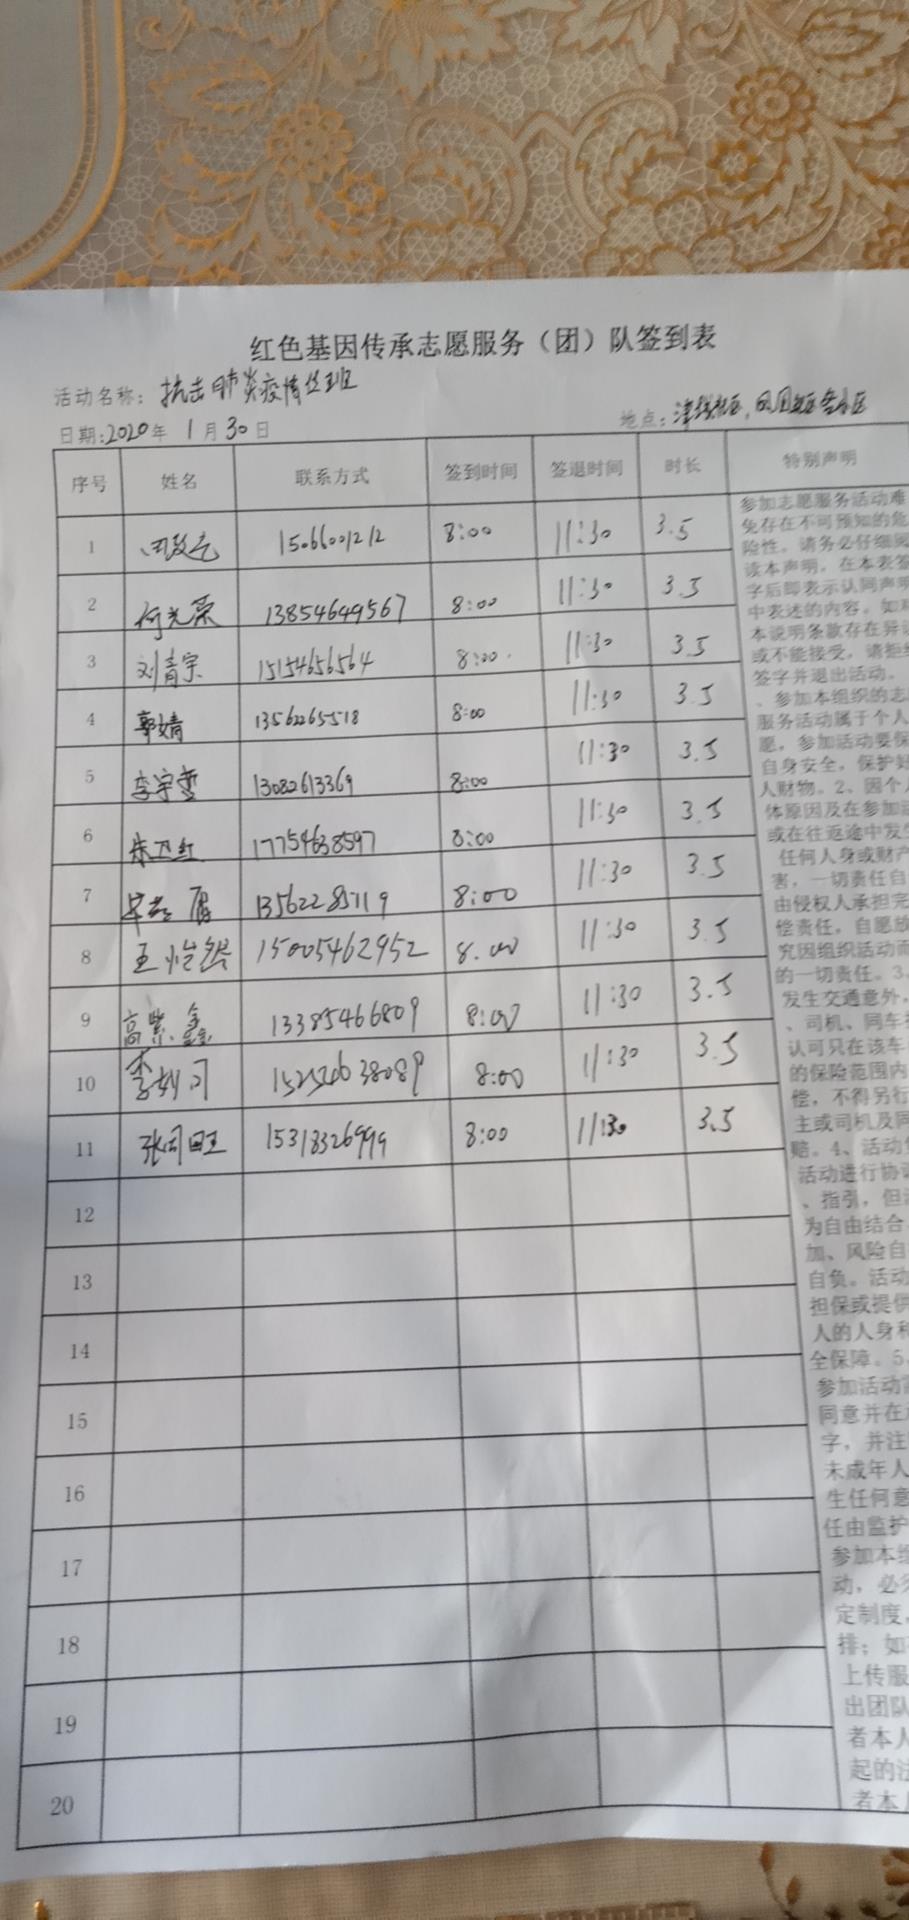 红色基因传承志愿服务（团）队签到表
活动名称：抗击肺炎疫情值班
日期:2020年 1月30日 地点：
序号 姓名 联系方式 签到时间 签退时间 时长 特别声明
1 15066001212 8:00 11:30 3.5
2 何光荣 13854649567 8:00 11:30 3.5
3 刘青宇 15154656564 8:00 11:30 3.5
4 郭婧 13562265518 8:00 11:30 3.5
5 李宇雯 13082613369 8:00 11:30 3.5
6 朱卫红 17754638597 8:00 11:30 3.5
7 13562285119 8:00 11:30 3.5
8 王怡然 15005462952 8.00 11:30 3.5
9 高紫鑫 13385466809 8:00 11:30 3.5
10 15254638089 8:00 11:30 3.5
11 张同旺 15318326999 8:00 11:30 3.5
12
13
14
15
16
17
18
19
20
参加志愿服务活动难
免存在不可预知的危
险性。请务必仔细阅
读本声明，在本表签
字后即表示认同声明
中表述的内容。如对
本说明条款存在异议
或不能接受，请拒绝
签字并退出活动。
、参加本组织的志愿
服务活动属于个人
愿，参加活动要保
自身安全，保护好
人财物。2、因个人
体原因及在参加活
或在往返途中发生
任何人身或财产
害，一切责任自
由侵权人承担完
偿责任，自愿放
究因组织活动而
的一切责任。3、
发生交通意外，
、司机、同车
认可只在该车
的保险范围内
偿，不得另行
主或司机及同
赔。4、活动
活动进行协
、指引，但
为自由结合
加、风险自
自负。活动
担保或提供
人的人身和
全保障。5、
参加活动需
同意并在
字，并注
未成年人
生任何意
任由监护
参加本组
动，必须
定制度，
排；如
上传服
出团队
者本人
起的法
者本人